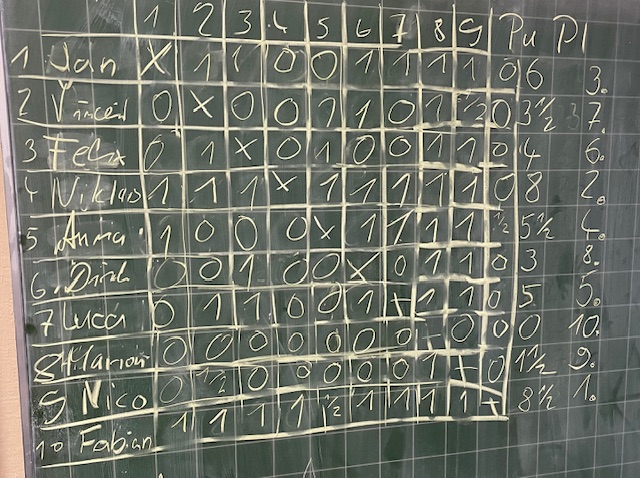 1 2 3 4 5 6 7 8 9 Pu Pl
1 Jan X 1 1 0 0 1 1 1 1 0 6 3.
2 Vincent 0 X 0 0 1 1 0 1 1/2 0 3 1/2 7.
3 Felix 0 1 X 0 1 0 0 1 1 0 4 6.
4 Niklas 1 1 1 X 1 1 1 1 1 0 8 2.
5 Anna 1 0 0 0 X 1 1 1 1 1/2 5 1/2 4.
6. Dirk 0 0 1 0 0 X 0 1 1 0 3 8.
7 Luca 0 1 1 0 0 1 X 1 1 0 5 5.
8 Marion 0 0 0 0 0 0 0 0 0 0 10.
9 Nico 0 1/2 0 0 0 0 0 1 0 1 1/2 9.
10 Fabian 1 1 1 1 1/2 1 1 1 1 8 1/2 1.